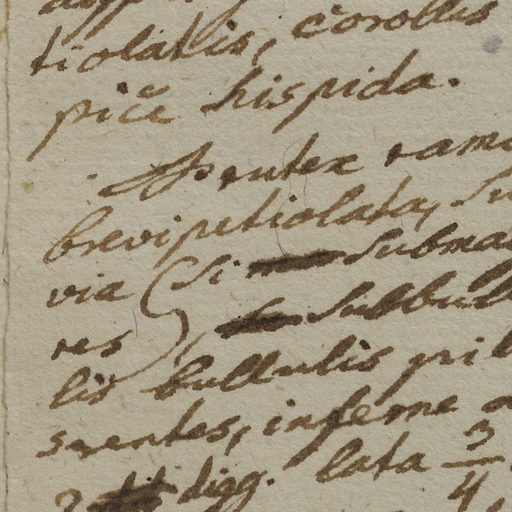 tiolatis, corollis
pice hispida.
Frutex ramo
brevipetiolata, su
via (Si submar
res), subbull
lis bullulis pil
srentes, inferne
digg. lata 3/4